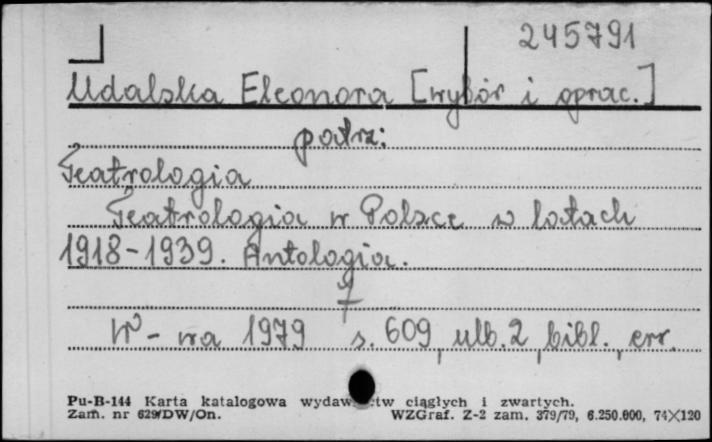 245791
Udalska Eleonora [wybór i oprac.]
patrz:
Teatrologia
Teatrologia w Polsce w latach
1918-1939. Antologia.
W-wa 1979 s. 609, ulb. 2, bibl., err.
Pu-B-144 Karta katalogowa wydawnictw ciągłych i zwartych.
Zam. nr 629/DW/On. WZGraf. Z-2 zam. 379/79, 6.250.000, 74×120